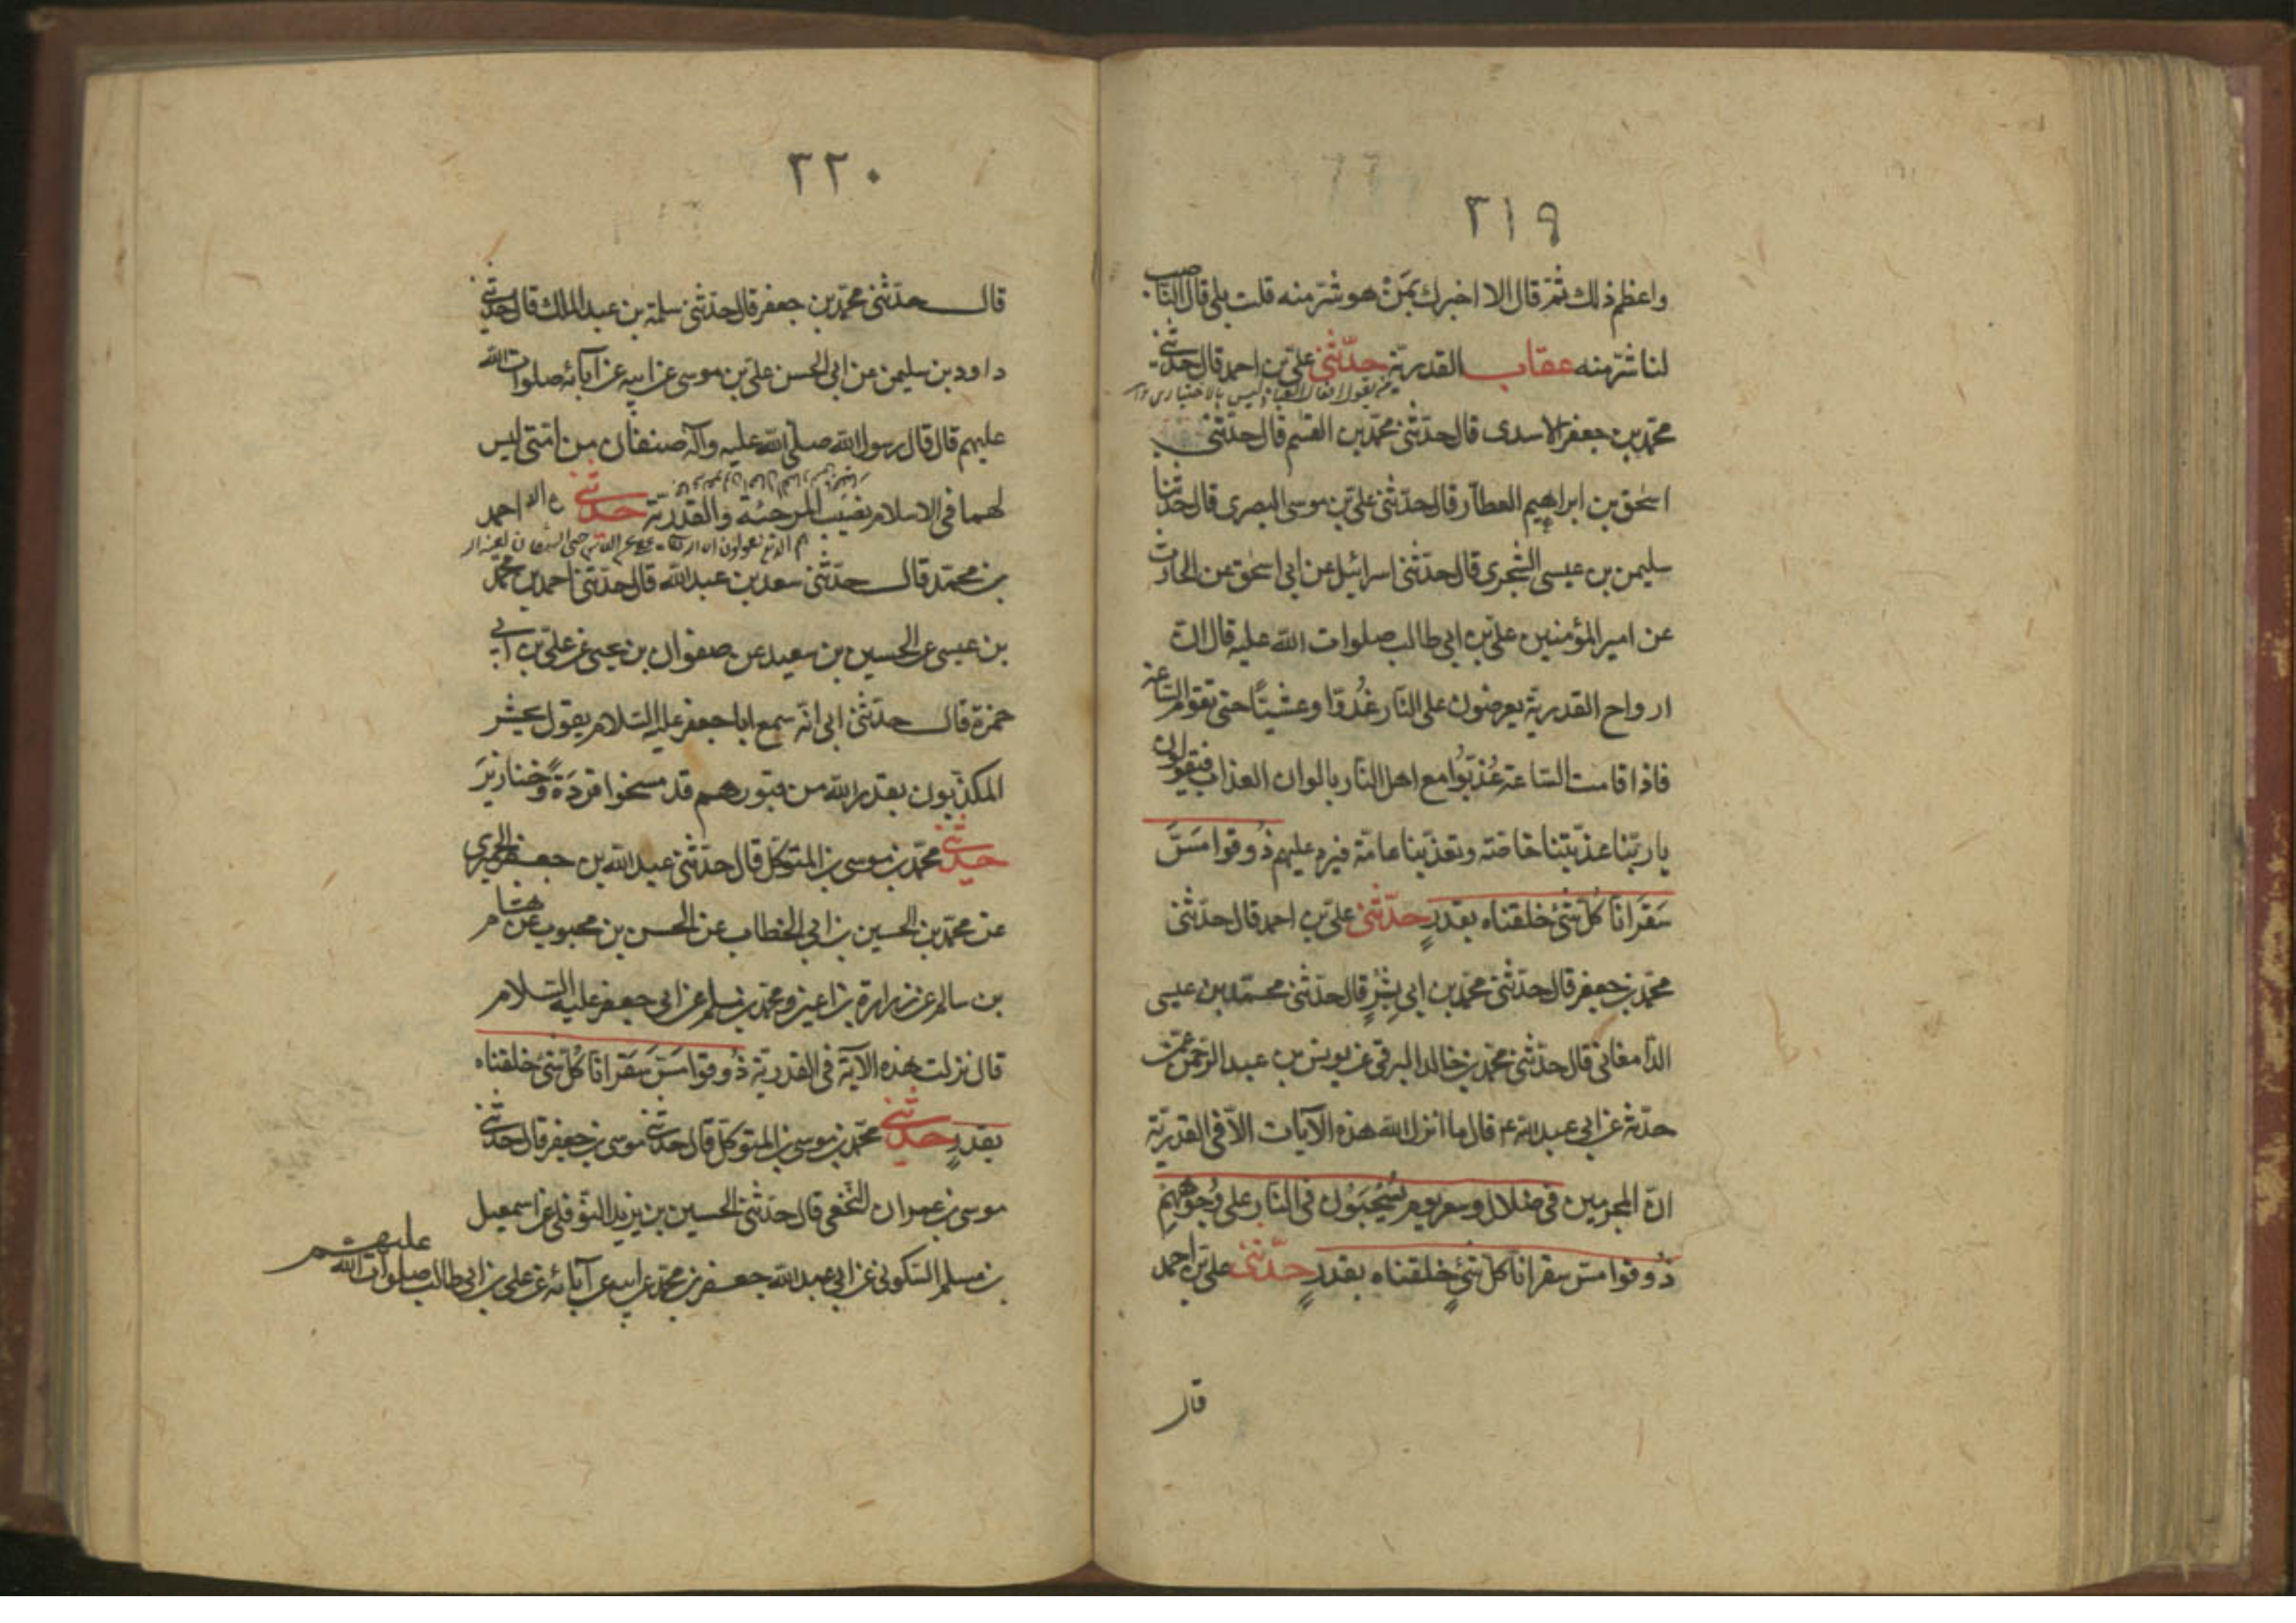 ٢١٩
واعظم ذلك ثمّ قال الا اخبرك بمَنْ هو شرّ منه قلت بلى قال الناصب
لنا شرّ منه عقاب القدريّة حدّثني علىّ بن احمد قال حدّثني
محمّد بن جعفر الاسدى قال حدّثني محمّد بن القسم قال حدّثني
اسحق بن ابراهيم العطّار قال حدّثني علىّ بن موسى البصرى قال حدّثنا
سليمن بن عيسى الشجرى قال حدّثني اسرائيل عن ابى اسحق عن الحارث
عن امير المؤمنين علىّ بن ابى طالب صلوات الله عليه قال انّ
ارواح القدريّة يعرضون على النّار غُدوّا وعشيّا حتى تقوم السّاعة
فاذا قامت السّاعة عُذّبوا مع اهل النّار بالوان العذاب فيقولون
يا ربّنا عذّبتنا خاصّة وتعذّبنا عامّة فيرد عليهم ذُوقوا مَسَّ
سَقَرَ انّا كلّ شئ خلقناه بقدرٍ حدّثني علىّ بن احمد قال حدّثني
محمّد بن جعفر قال حدّثني محمّد بن ابى بِشْرٍ قال حدّثني محمّد بن عيسى
الدّامغانى قال حدّثني محمّد بن خالد البرقى عن يونس بن عبد الرّحمن عمّن
حدّثه عن ابى عبد الله ع قال ما انزل الله هذه الآيات الاّ فى القدريّة
انّ المجرمين فى ضلال وسعر يوم يُسْحَبُون فى النّار على وُجُوهِهِم
ذُوقوا مسّ سقر انّا كلّ شئٍ خلقناه بقدرٍ حدّثني علىّ بن احمد
قال
٢٢٠
قال حدّثني محمّد بن جعفر قال حدّثني سلمة بن عبد الملك قال حدّثني
داود بن سليمن عن ابى الحسن علىّ بن موسى عن ابيه عن آبائه صلوات الله
عليهم قال قال رسول الله صلّى الله عليه وآله صنفان من امّتى ليس
لهما فى الاسلام نصيب المرجئة والقدريّة حدّثني احمد
بن محمّد قال حدّثني سعد بن عبد الله قال حدّثني احمد بن محمّد
بن عيسى عن الحسين بن سعيد عن صفوان بن يحيى عن علىّ بن ابى
حمزة قال حدّثني ابى انّه سمع ابا جعفر عليه السّلام يقول يحشر
المكذّبون بقدر الله من قبورهم قد مسخوا قردَةً وخنازيرَ
حدّثني محمّد بن موسى بن المتوكّل قال حدّثني عبد الله بن جعفر الحميرى
عن محمّد بن الحسين بن ابى الخطاب عن الحسن بن محبوب عن هشام
بن سالم عن زرارة بن اعين ومحمّد بن مسلم عن ابى جعفر عليه السّلام
قال نزلت هذه الآية فى القدريّة ذُوقوا مَسَّ سَقَر انّا كُلّ شئ خلقناه
بقدرٍ حدّثني محمّد بن موسى بن المتوكّل قال حدّثني موسى بن جعفر قال حدّثني
موسى بن عمران النّخعى قال حدّثني الحسين بن يزيد النّوفلى عن اسمعيل
بن مسلم السّكونى عن ابى عبد الله جعفر بن محمّد عن ابيه عن آبائه عن على بن ابى طالب صلوات الله عليهم